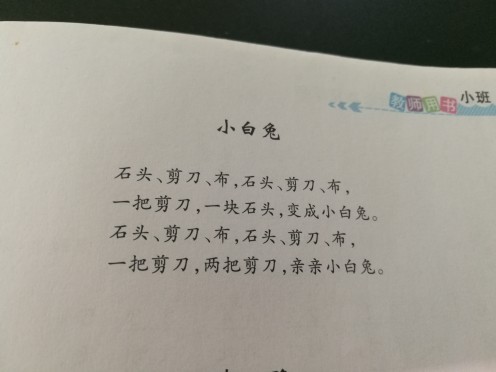 教师用书 小班
小白兔
石头、剪刀、布,石头、剪刀、布,
一把剪刀,一块石头,变成小白兔。
石头、剪刀、布,石头、剪刀、布,
一把剪刀,两把剪刀,亲亲小白兔。